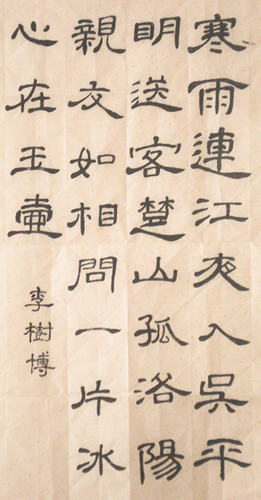 寒雨連江夜入吳平
明送客楚山孤洛陽
親友如相問一片冰
心在玉壺
李樹博